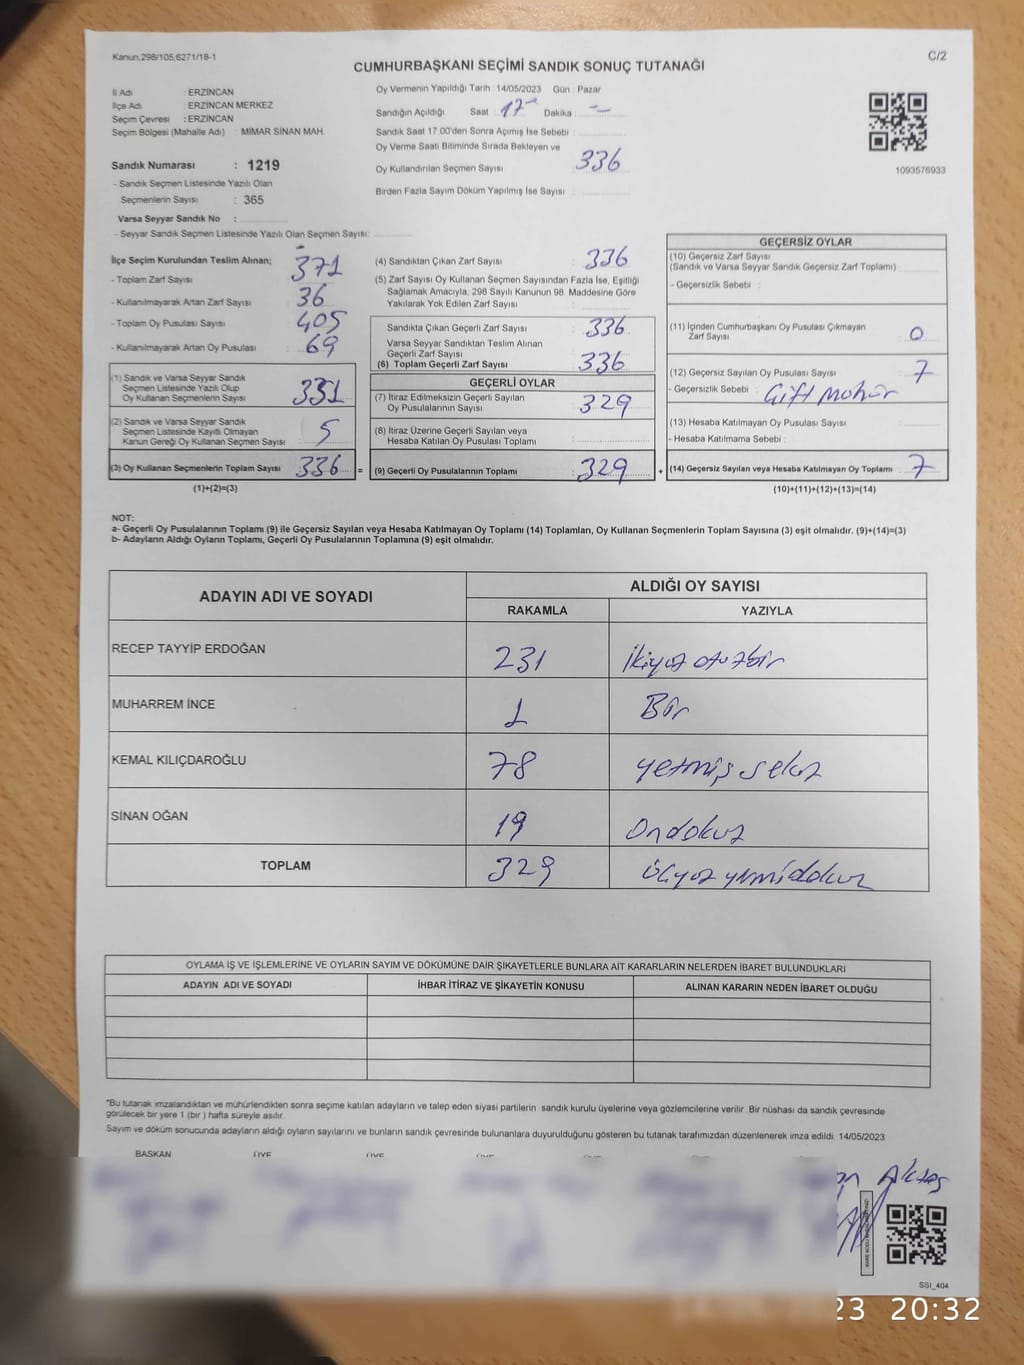 Kanun:298/105,6271/18-1
C/2
CUMHURBAŞKANI SEÇİMİ SANDIK SONUÇ TUTANAĞI
İl Adı : ERZİNCAN
İlçe Adı : ERZİNCAN MERKEZ
Seçim Çevresi : ERZİNCAN
Seçim Bölgesi (Mahalle Adı) : MİMAR SİNAN MAH.
Sandık Numarası : 1219
- Sandık Seçmen Listesinde Yazılı Olan
Seçmenlerin Sayısı : 365
Varsa Seyyar Sandık No :
- Seyyar Sandık Seçmen Listesinde Yazılı Olan Seçmen Sayısı:
Oy Vermenin Yapıldığı Tarih : 14/05/2023 Gün : Pazar
Sandığın Açıldığı Saat : 17 Dakika : --
Sandık Saat 17.00'den Sonra Açımış İse Sebebi :
Oy Verme Saati Bitiminde Sırada Bekleyen ve
Oy Kullandırılan Seçmen Sayısı : 336
Birden Fazla Sayım Döküm Yapılmış İse Sayısı :
1093576933
İlçe Seçim Kurulundan Teslim Alınan;
- Toplam Zarf Sayısı : 371
- Kullanılmayarak Artan Zarf Sayısı : 36
- Toplam Oy Pusulası Sayısı : 405
- Kullanılmayarak Artan Oy Pusulası : 69
(1) Sandık ve Varsa Seyyar Sandık
Seçmen Listesinde Yazılı Olup
Oy Kullanan Seçmenlerin Sayısı : 331
(2) Sandık ve Varsa Seyyar Sandık
Seçmen Listesinde Kayıtlı Olmayan
Kanun Gereği Oy Kullanan Seçmen Sayısı : 5
(3) Oy Kullanan Seçmenlerin Toplam Sayısı : 336 =
(1)+(2)=(3)
(4) Sandıktan Çıkan Zarf Sayısı : 336
(5) Zarf Sayısı Oy Kullanan Seçmen Sayısından Fazla İse, Eşitliği
Sağlamak Amacıyla, 298 Sayılı Kanunun 98. Maddesine Göre
Yakılarak Yok Edilen Zarf Sayısı :
Sandıkta Çıkan Geçerli Zarf Sayısı : 336
Varsa Seyyar Sandıktan Teslim Alınan
Geçerli Zarf Sayısı :
(6) Toplam Geçerli Zarf Sayısı : 336
GEÇERLİ OYLAR
(7) İtiraz Edilmeksizin Geçerli Sayılan
Oy Pusulalarının Sayısı : 329
(8) İtiraz Üzerine Geçerli Sayılan veya
Hesaba Katılan Oy Pusulası Toplamı :
(9) Geçerli Oy Pusulalarının Toplamı : 329 +
GEÇERSİZ OYLAR
(10) Geçersiz Zarf Sayısı
(Sandık ve Varsa Seyyar Sandık Geçersiz Zarf Toplamı) :
- Geçersizlik Sebebi :
(11) İçinden Cumhurbaşkanı Oy Pusulası Çıkmayan
Zarf Sayısı : 0
(12) Geçersiz Sayılan Oy Pusulası Sayısı : 7
- Geçersizlik Sebebi : Çift Mühür
(13) Hesaba Katılmayan Oy Pusulası Sayısı :
- Hesaba Katılmama Sebebi :
(14) Geçersiz Sayılan veya Hesaba Katılmayan Oy Toplamı : 7
(10)+(11)+(12)+(13)=(14)
NOT:
a- Geçerli Oy Pusulalarının Toplamı (9) ile Geçersiz Sayılan veya Hesaba Katılmayan Oy Toplamı (14) Toplamları, Oy Kullanan Seçmenlerin Toplam Sayısına (3) eşit olmalıdır. (9)+(14)=(3)
b- Adayların Aldığı Oyların Toplamı, Geçerli Oy Pusulalarının Toplamına (9) eşit olmalıdır.
ADAYIN ADI VE SOYADI
ALDIĞI OY SAYISI
RAKAMLA YAZIYLA
RECEP TAYYİP ERDOĞAN 231 İkiyüz otuzbir
MUHARREM İNCE 1 Bir
KEMAL KILIÇDAROĞLU 78 yetmiş sekiz
SİNAN OĞAN 19 Ondokuz
TOPLAM 329 üçyüz yirmidokuz
OYLAMA İŞ VE İŞLEMLERİNE VE OYLARIN SAYIM VE DÖKÜMÜNE DAİR ŞİKAYETLERLE BUNLARA AİT KARARLARIN NELERDEN İBARET BULUNDUKLARI
ADAYIN ADI VE SOYADI İHBAR İTİRAZ VE ŞİKAYETİN KONUSU ALINAN KARARIN NEDEN İBARET OLDUĞU
*Bu tutanak imzalandıktan ve mühürlendikten sonra seçime katılan adayların ve talep eden siyasi partilerin sandık kurulu üyelerine veya gözlemcilerine verilir .Bir nüshası da sandık çevresinde
görülecek bir yere 1 (bir ) hafta süreyle asılır.
Sayım ve döküm sonucunda adayların aldığı oyların sayılarını ve bunların sandık çevresinde bulunanlara duyurulduğunu gösteren bu tutanak tarafımızdan düzenlenerek imza edildi. 14/05/2023
BAŞKAN ÜYE ÜYE ÜYE
Aktaş
SSI_404
23 20:32